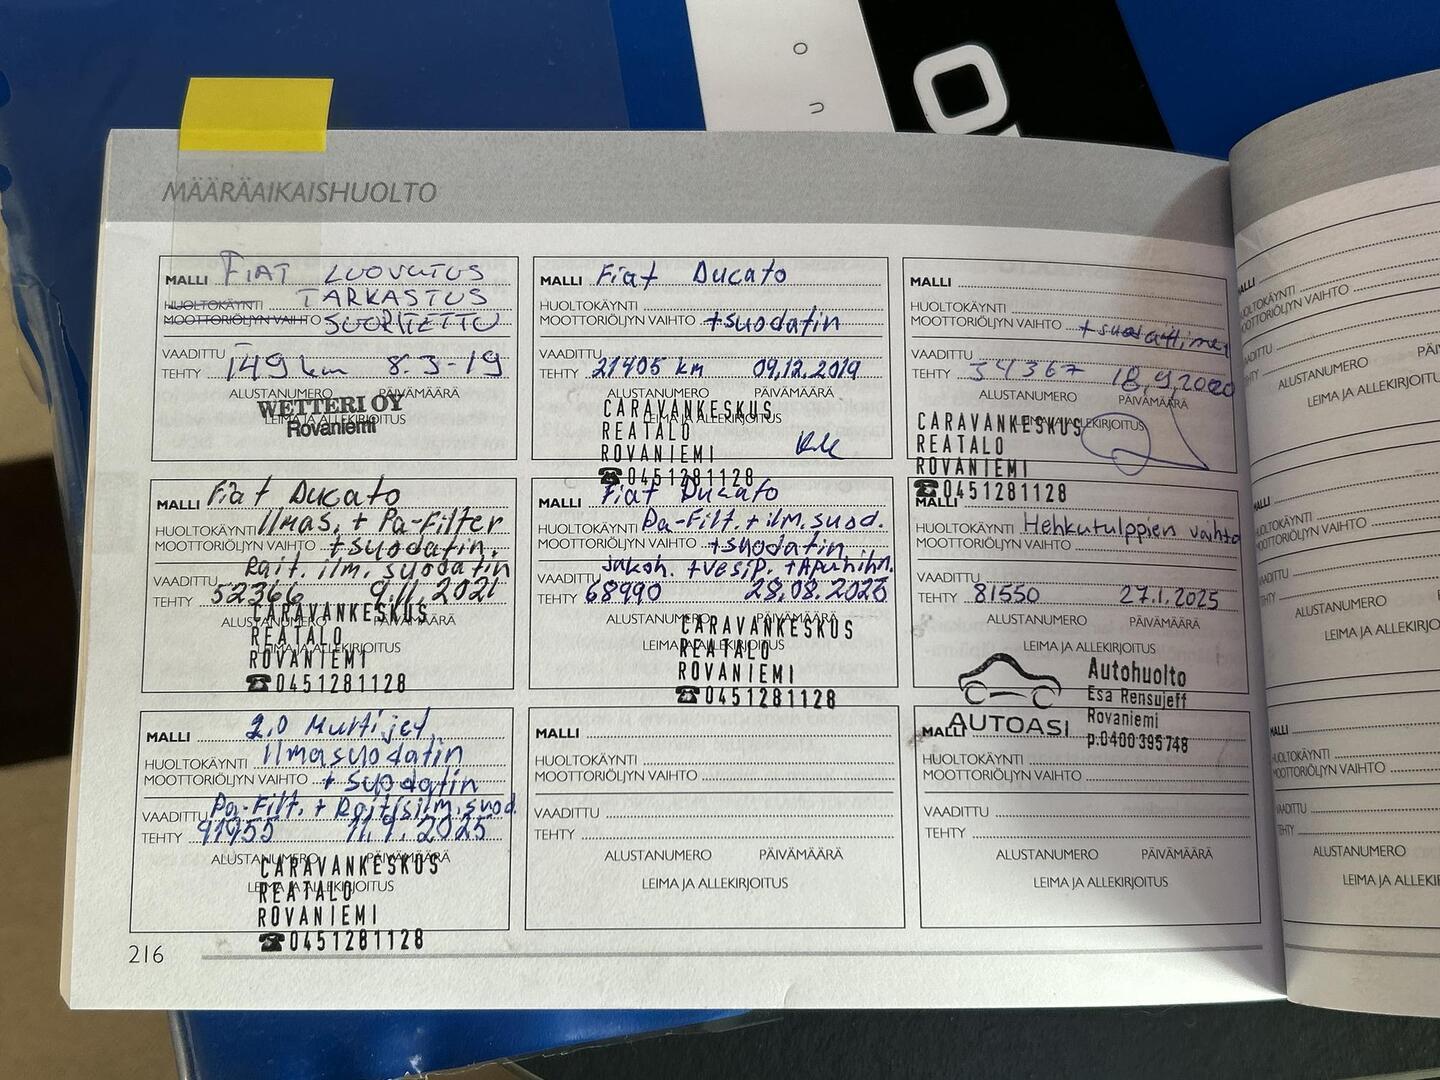 MÄÄRÄAIKAISHUOLTO
MALLI FIAT LUOVUTUS
HUOLTOKÄYNTI TARKASTUS
MOOTTORIÖLJYN VAIHTO SUORITETTU
VAADITTU
TEHTY 149 km 8.3-19
ALUSTANUMERO PÄIVÄMÄÄRÄ
LEIMA JA ALLEKIRJOITUS
WETTERI OY
Rovaniemi
MALLI Fiat Ducato
HUOLTOKÄYNTI
MOOTTORIÖLJYN VAIHTO +suodatin
VAADITTU
TEHTY 21405 km 09.12.2019
ALUSTANUMERO PÄIVÄMÄÄRÄ
LEIMA JA ALLEKIRJOITUS
CARAVANKESKUS
REATALO
ROVANIEMI
☎0451281128
MALLI
HUOLTOKÄYNTI
MOOTTORIÖLJYN VAIHTO
VAADITTU
TEHTY 34367 18,9,2020
ALUSTANUMERO PÄIVÄMÄÄRÄ
LEIMA JA ALLEKIRJOITUS
CARAVANKESKUS
REATALO
ROVANIEMI
☎0451281128
MALLI Fiat Ducato
HUOLTOKÄYNTI Ilmas. + Pa-Filter
MOOTTORIÖLJYN VAIHTO +suodatin.
Rait. ilm. suodatin
VAADITTU
TEHTY 52366 9.11.2021
ALUSTANUMERO PÄIVÄMÄÄRÄ
LEIMA JA ALLEKIRJOITUS
CARAVANKESKUS
REATALO
ROVANIEMI
☎0451281128
MALLI Fiat Ducato
HUOLTOKÄYNTI Pa-Filt. + ilm. suod.
MOOTTORIÖLJYN VAIHTO +suodatin
Jakoh. +Vesip. +Apuhihn.
VAADITTU
TEHTY 68990 28.08.2023
ALUSTANUMERO PÄIVÄMÄÄRÄ
LEIMA JA ALLEKIRJOITUS
CARAVANKESKUS
REATALO
ROVANIEMI
☎0451281128
MALLI
HUOLTOKÄYNTI Hehkutulppien vaihto
MOOTTORIÖLJYN VAIHTO
VAADITTU
TEHTY 81550 27.1.2025
ALUSTANUMERO PÄIVÄMÄÄRÄ
LEIMA JA ALLEKIRJOITUS
AUTOASI
Autohuolto
Esa Rensujeff
Rovaniemi
p.0400 395748
MALLI 2,0 Multijet
HUOLTOKÄYNTI Ilmasuodatin
MOOTTORIÖLJYN VAIHTO + suodatin
VAADITTU Pa-Filt. + Raitisilm.suod.
TEHTY 91955 11.9.2025
ALUSTANUMERO PÄIVÄMÄÄRÄ
LEIMA JA ALLEKIRJOITUS
CARAVANKESKUS
REATALO
ROVANIEMI
☎0451281128
MALLI
HUOLTOKÄYNTI
MOOTTORIÖLJYN VAIHTO
VAADITTU
TEHTY
ALUSTANUMERO PÄIVÄMÄÄRÄ
LEIMA JA ALLEKIRJOITUS
MALLI
HUOLTOKÄYNTI
MOOTTORIÖLJYN VAIHTO
VAADITTU
TEHTY
ALUSTANUMERO PÄIVÄMÄÄRÄ
LEIMA JA ALLEKIRJOITUS
216
HUOLTOKÄYNTI
VAADITTU
ALUSTANUMERO
HUOLTOKÄYNTI
VAADITTU
ALUSTANUMERO
HUOLTOKÄYNTI
VAADITTU
ALUSTANUMERO